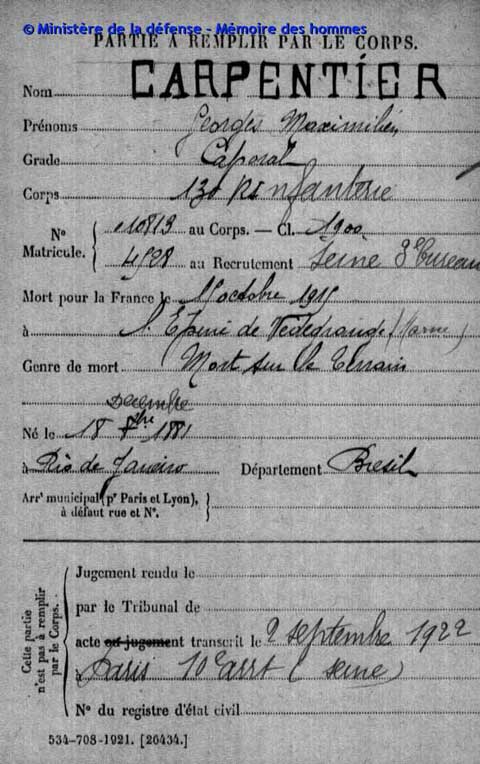 © Ministère de la défense - Mémoire des hommes
PARTIE À REMPLIR PAR LE CORPS.
Nom CARPENTIER
Prénoms Georges Maximilien
Grade Caporal
Corps 130 RI nfanterie
N° Matricule. { 10813 au Corps. — Cl. 1900
4598 au Recrutement Seine 3e bureau
Mort pour la France le 1 octobre 1915
à l'Epine de (Marne)
Genre de mort Mort sur le terrain
Décembre
Né le 18 1881
à Rio de Janeiro Département Bresil
Arrt municipal (pr Paris et Lyon), à défaut rue et N°. }
Cette partie n'est pas à remplir par le Corps.
Jugement rendu le
par le Tribunal de
acte ou jugement transcrit le 2 septembre 1922
à Paris 10e arrt (Seine)
N° du registre d'état civil
534-708-1921. [26434.]